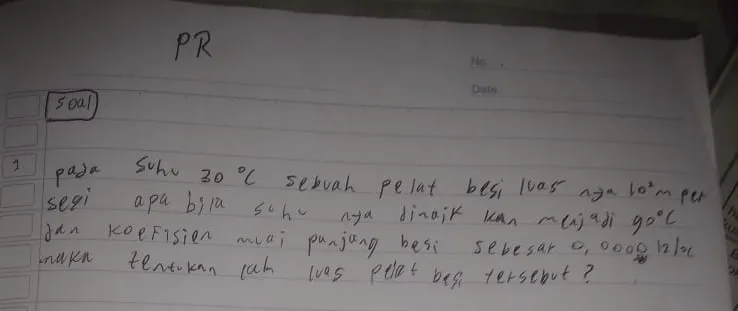 PR
No.
Date
Soal
1 pada suhu 30°C sebuah pelat besi luas nya 10²m per
segi apa bila suhu nya dinaik kan menjadi 90°C
dan koefisien muai panjang besi sebesar 0,000012/°C
maka tentukan lah luas pelat besi tersebut?